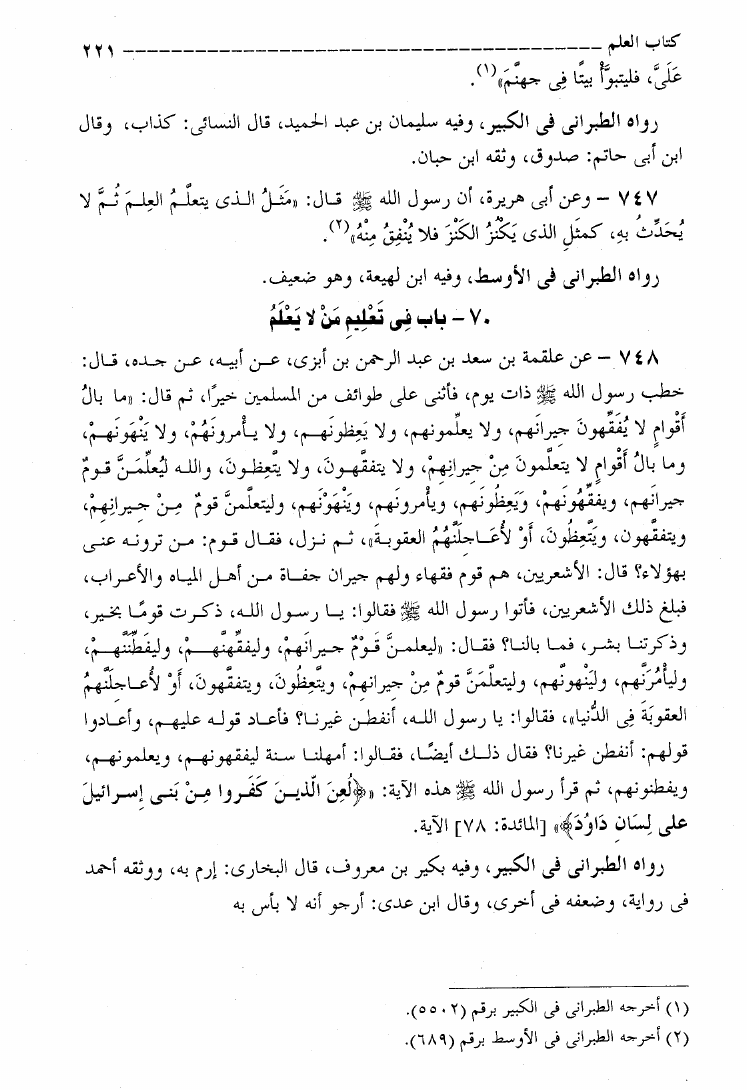 كتاب العلم ــــــــــــــــــــــــــــــــــــــــ ٢٢١
عَلَىَّ، فليتبوَّأْ بيتًا فِى جهنَّمَ»(١).
رواه الطبرانى فى الكبير، وفيه سليمان بن عبد الحميد، قال النسائى: كذاب، وقال
ابن أبى حاتم: صدوق، وثقه ابن حبان.
٧٤٧ – وعن أبى هريرة، أن رسول الله ﷺ قال: «مَثَلُ الذى يتعلَّمُ العِلمَ ثُمَّ لا
يُحَدِّثُ بهِ، كمثَلِ الذى يَكْنُزُ الكَنْزَ فلا يُنْفِقُ مِنْهُ»(٢).
رواه الطبرانى فى الأوسط، وفيه ابن لهيعة، وهو ضعيف.
٧٠ – باب فِى تَعْلِيمِ مَنْ لا يَعْلَمُ
٧٤٨ – عن علقمة بن سعد بن عبد الرحمن بن أبزى، عن أبيه، عن جده، قال:
خطب رسول الله ﷺ ذات يوم، فأثنى على طوائف من المسلمين خيرًا، ثم قال: «ما بالُ
أقْوامٍ لا يُفَقِّهونَ جيرانَهم، ولا يعلِّمونهم، ولا يَعِظونهم، ولا يأمرونَهُمْ، ولا يَنْهَونَهمْ،
وما بالُ أقْوامٍ لا يتعلَّمون مِنْ جيرانِهِمْ، ولا يتفقَّهونَ، ولا يتَّعِظونَ، والله ليُعلِّمَنَّ قومٌ
جيرانَهم، ويفقِّهُونَهُمْ، وَيَعِظُونَهم، ويأمرونَهم، ويَنْهَوْنَهم، وليتعلَّمنَّ قومٌ مِنْ جيرانِهِمْ،
ويتفقَّهون، ويَتَّعِظُون، أَوْ لأُعَاجلَنَّهُمُ العقوبةَ»، ثم نزل، فقال قوم: من ترونه عنى
بهؤلاء؟ قال: الأشعريين، هم قوم فقهاء ولهم جيران جفاة من أهل المياه والأعراب،
فبلغ ذلك الأشعريين، فأتوا رسول الله ﷺ فقالوا: يا رسول الله، ذكرت قومًا بخير،
وذكرتنا بشر، فما بالنا؟ فقال: «ليعلمنَّ قَوْمٌ جيرانَهُمْ، وليفقِّهنَّهمْ، وليفَطِّنَنَّهمْ،
وليأْمُرَنَّهم، ولَيَنْهونَّهم، وليتعلَّمَنَّ قومٌ مِنْ جيرانِهمْ، ويتَّعِظُونَ، ويتفقَّهونَ، أوْ لأُعاجلَنَّهمُ
العقوبَةَ فِى الدُّنيا»، فقالوا: يا رسول الله، أنفطن غيرنا؟ فأعاد قوله عليهم، وأعادوا
قولهم: أنفطن غيرنا؟ فقال ذلك أيضًا، فقالوا: أمهلنا سنة ليفقهونهم، ويعلمونهم،
ويفطنونهم، ثم قرأ رسول الله ﷺ هذه الآية: «﴿لُعِنَ الَّذينَ كَفَروا مِنْ بَنى إسرائيلَ
على لِسَانِ دَاوُدَ﴾» [المائدة: ٧٨] الآية.
رواه الطبرانى فى الكبير، وفيه بكير بن معروف، قال البخارى: إرم به، ووثقه أحمد
فى رواية، وضعفه فى أخرى، وقال ابن عدى: أرجو أنه لا بأس به
(١) أخرجه الطبرانى فى الكبير برقم (٥٥٠٢).
(٢) أخرجه الطبرانى فى الأوسط برقم (٦٨٩).